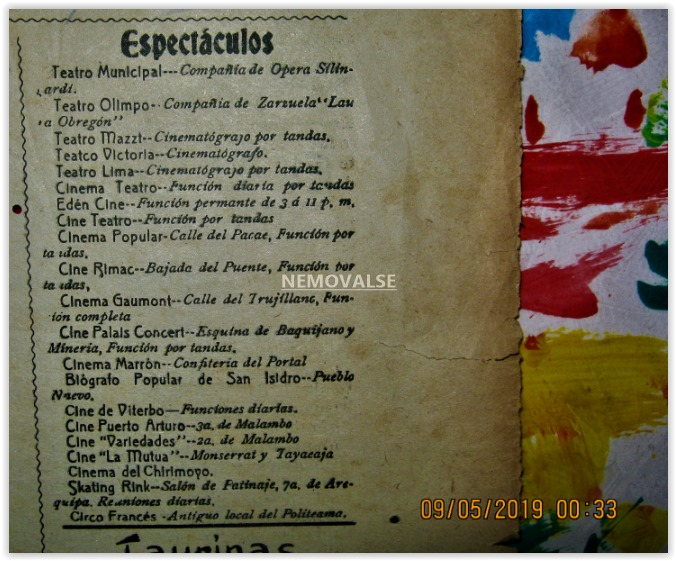 Espectáculos
Teatro Municipal---Compañia de Opera Silin-
ardi.
Teatro Olimpo--Compañia de Zarzuela "Lau
a Obregón"
Teatro Mazzi--Cinematógrafo por tandas.
Teatco Victoria--Cinematógrafo.
Teatro Lima--Cinematógrafo por tandas.
Cinema Teatro--Función diaria por tandas
Edén Cine--Función permante de 3 á 11 p. m.
Cine Teatro--Función por tandas
Cinema Popular-Calle del Pacae, Función por
ta das.
Cine Rimac--Bajada del Puente, Función por
ta das,
NEMOVALSE
Cinema Gaumont--Calle del Trujillano, Fun-
ión completa
Cine Palais Concert--Esquina de Baquijano y
Mineria, Función por tandas.
Cinema Marrón--Confiteria del Portal
Biógrafo Popular de San Isidro--Pueblo
Nuevo.
Cine de Viterbo—Funciones diarias.
Cine Puerto Arturo--3a. de Malambo
Cine "Variedades"--2a. de Malambo
Cine "La Mutua"--Monserrat y Tayacaja
Cinema del Chirimoyo.
Skating Rink--Salón de Patinaje, 7a. de Are-
quipa. Reuniones diarias.
Circo Francés -Antiguo local del Politeama.
Taurinas
09/05/2019 00:33